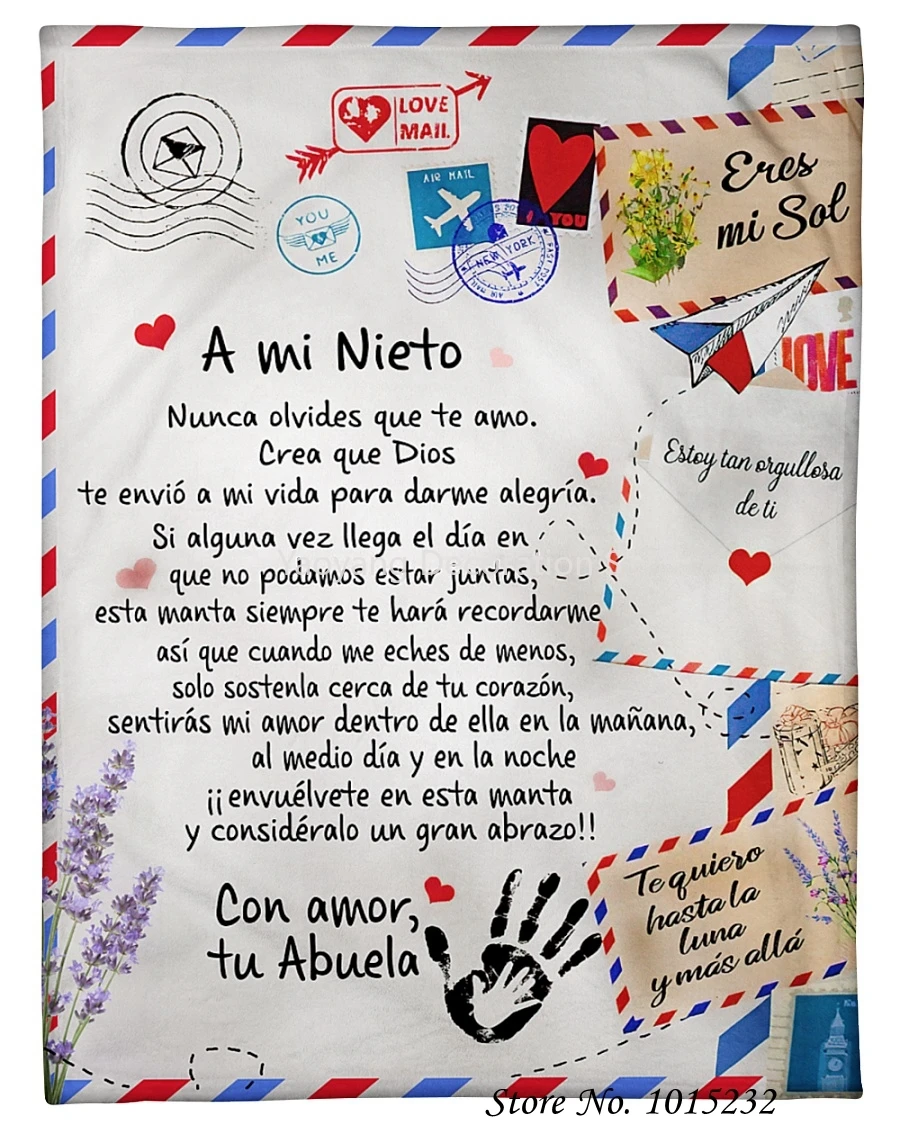 LOVE
MAIL
AIR MAIL
YOU
ME
I
YOU
NEW YORK
FAST POST
AIR MAIL
Eres
mi Sol
LOVE
A mi Nieto
Nunca olvides que te amo.
Crea que Dios
te envió a mi vida para darme alegría.
Si alguna vez llega el día en
que no podamos estar juntas,
esta manta siempre te hará recordarme
así que cuando me eches de menos,
solo sostenla cerca de tu corazón,
sentirás mi amor dentro de ella en la mañana,
al medio día y en la noche
¡¡envuélvete en esta manta
y considéralo un gran abrazo!!
Con amor,
tu Abuela
Estoy tan orgullosa
de ti
Te quiero
hasta la
luna
y más allá
Store No. 1015232